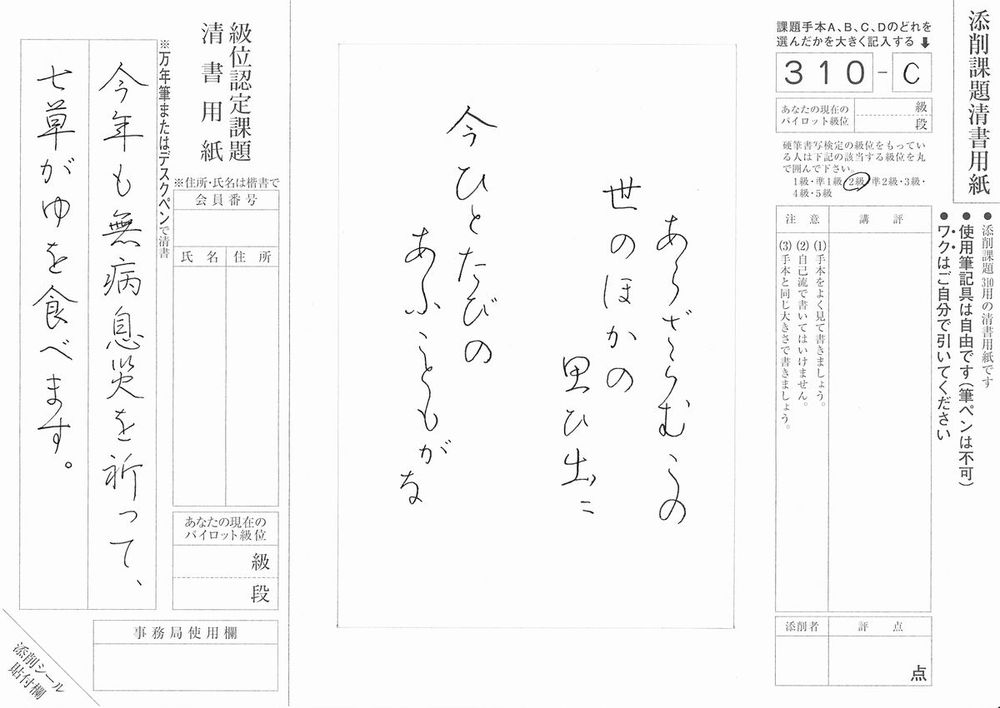 添削課題清書用紙
● 添削課題310用の清書用紙です
● 使用筆記具は自由です(筆ペンは不可)
● ワクはご自分で引いてください
課題手本A、B、C、Dのどれを
選んだかを大きく記入する⬇
310-C
あなたの現在の
パイロット級位
級
段
硬筆書写検定の級位をもってい
る人は下記の該当する級位を丸
で囲んで下さい。
1級・準1級・2級・準2級・3級・
4級・5級
講評
注意
(1)手本をよく見て書きましょう。
(2)自己流で書いてはいけません。
(3)手本と同じ大きさで書きましょう。
添削者
評点
点
あらざらむこの
世のほかの
思ひ出に
今ひとたびの
あふこともがな
級位認定課題
清書用紙
※住所・氏名は楷書で
会員番号
住所
氏名
あなたの現在の
パイロット級位
級
段
事務局使用欄
※万年筆またはデスクペンで清書
今年も無病息災を祈って、
七草がゆを食べます。
添削シール
貼付欄